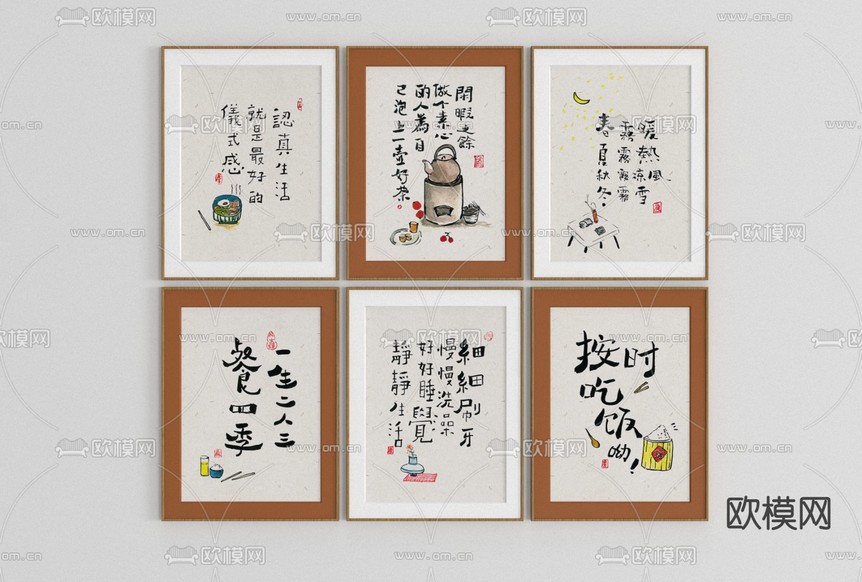 認真生活
就是最好的
儀式感
閑暇之餘
做个素心
的人為自
己泡上一壺好茶
暖熱
春夏秋冬
一生二人三
餐四季
細細刷牙
慢慢洗澡
好好睡覺
靜靜生活
按时
吃饭
呦!
欧模网
www.om.cn